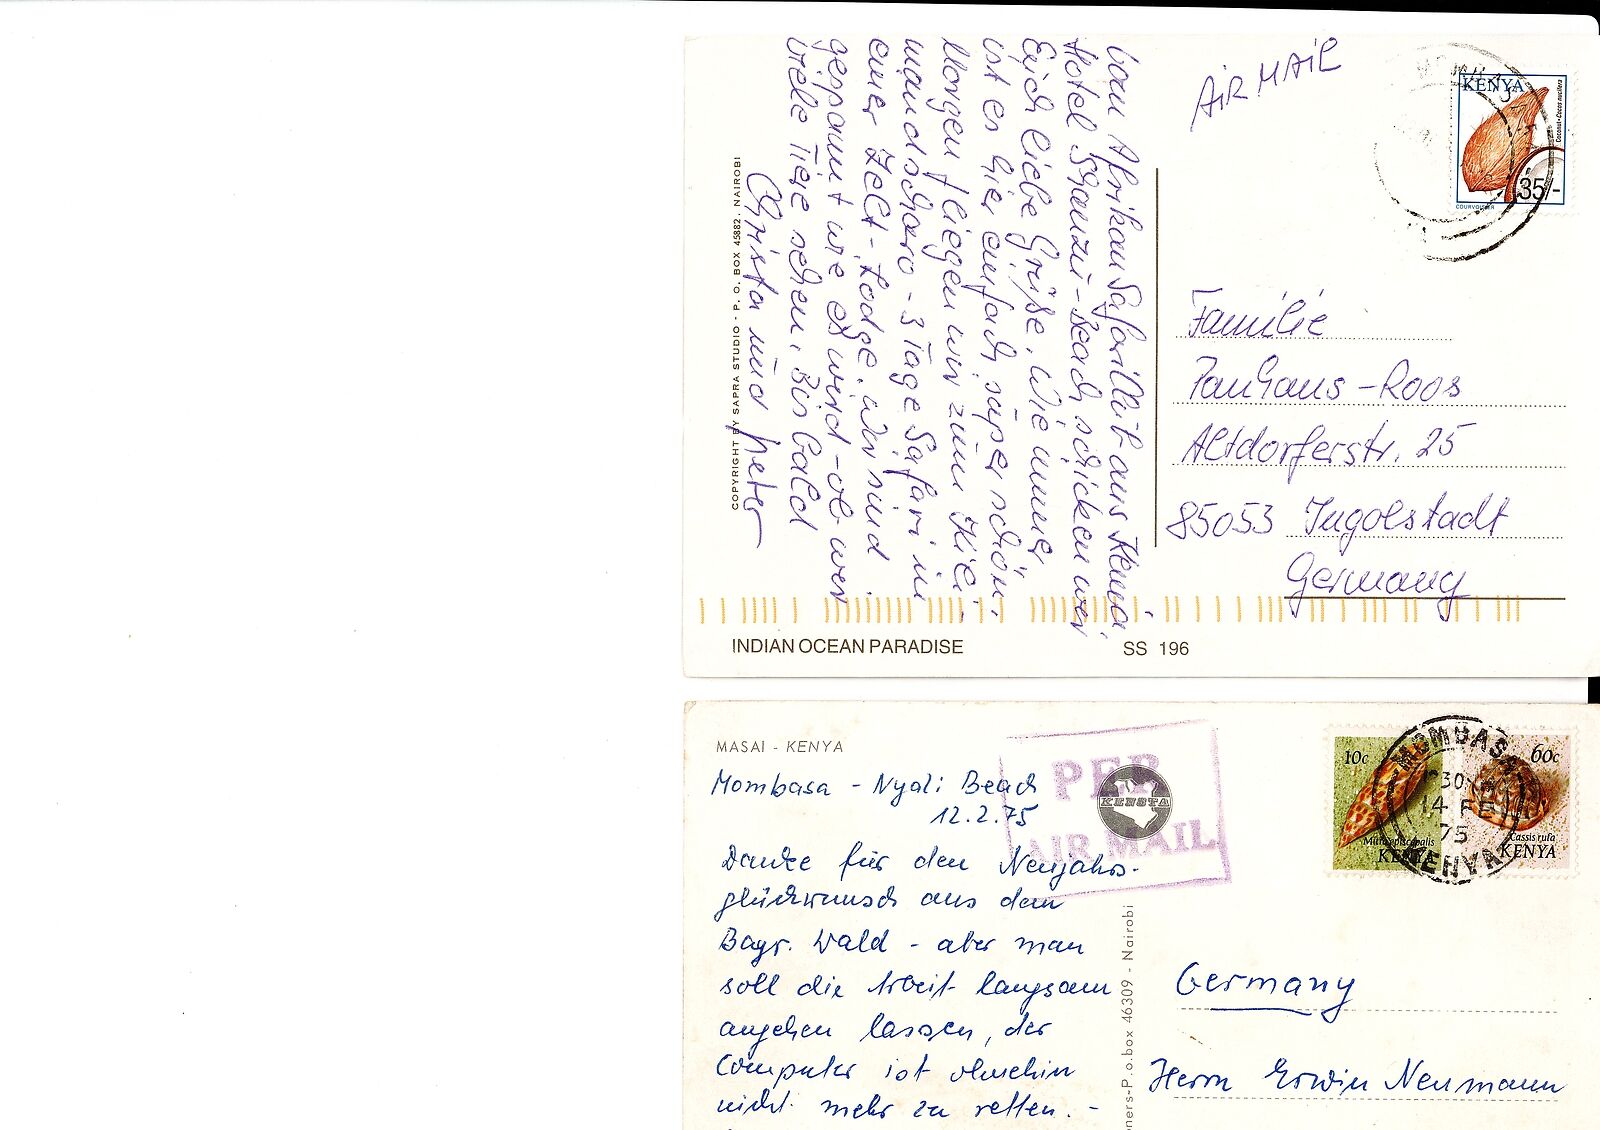 AIR MAIL
KENYA
Coconut-Cocos nucifera
35/-
COURVOISIER
Vom Afrikan Safariclub aus Kenia
Hotel Shanzu-Beach schicken wir
Euch liebe Grüße. Wie immer
ist es hier einfach super schön.
Morgen fliegen wir zum Kili-
mandscharo - 3 Tage Safari in
einer Zelt-Lodge. Wir sind
gespannt wie es wird - ob wir
viele Tiere sehen. Bis bald
Christa und Peter
COPYRIGHT BY SAPRA STUDIO - P. O. BOX 45882. NAIROBI
Familie
Panhans-Roos
Altdorferstr. 25
85053 Ingolstadt
Germany
INDIAN OCEAN PARADISE
SS 196
MASAI - KENYA
PER
AIR MAIL
KENSTA
10c
60c
MOMBASA
30
14 FE
75
KENYA
Mitra episcopalis
KENYA
Cassis rufa
KENYA
Mombasa - Nyali Beach
12.2.75
Danke für den Neujahrs-
glückwunsch aus dem
Bayr. Wald - aber man
soll die Arbeit langsam
angehen lassen, der
Computer ist ohnehin
nicht mehr zu retten. -
ners-P.o.box 46309 - Nairobi
Germany
Herrn Erwin Neumann